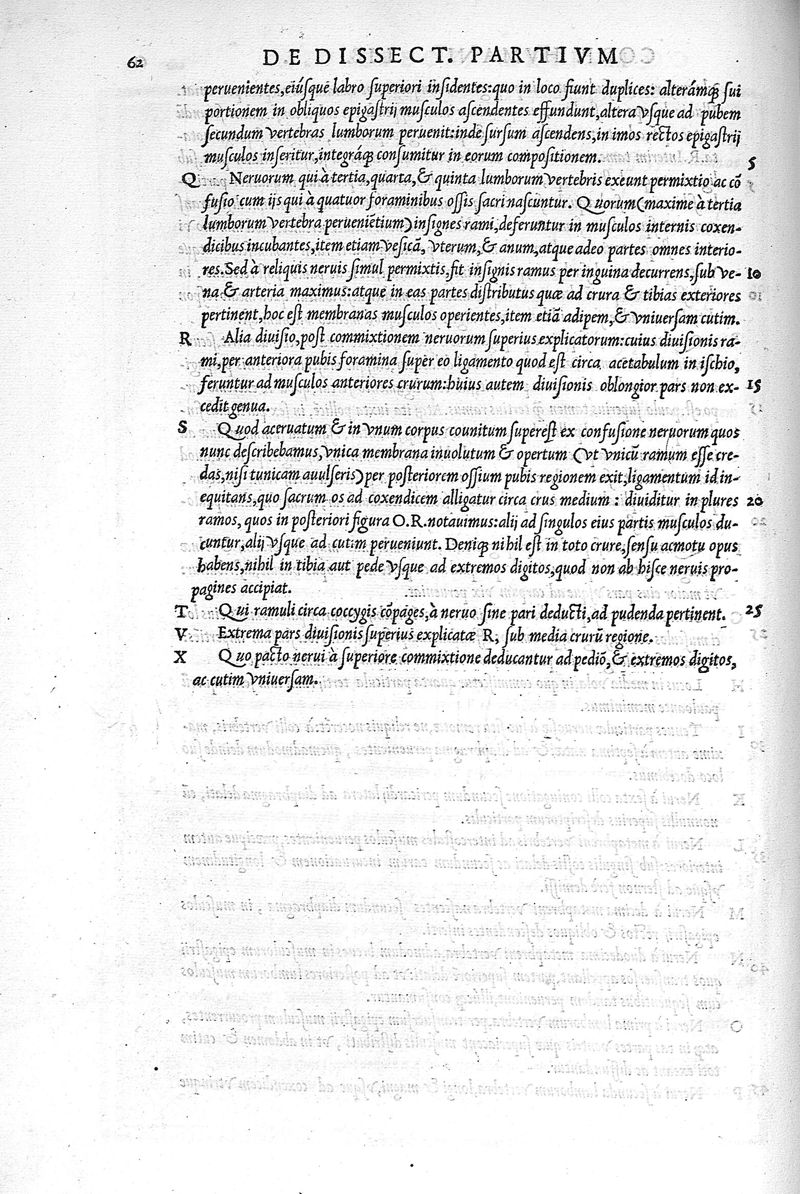 62 DE DISSECT. PARTIVM
peruenientes, eiúsque labro superiori insidentes: quo in loco fiunt duplices: alterámq; sui
portionem in obliquos epigastrij musculos ascendentes effundunt, altera vsque ad pubem
secundum vertebras lumborum peruenit: inde sursum ascendens, in imos rectos epigastrij
musculos inseritur, integráq; consumitur in eorum compositionem.
5
Q Neruorum qui à tertia, quarta, & quinta lumborum vertebris exeunt permixtio ac cõ
fusio cum ijs qui à quatuor foraminibus ossis sacri nascuntur. Quorum (maxime à tertia
lumborum vertebra perueniẽtium) insignes rami, deferuntur in musculos internis coxen-
dicibus incubantes, item etiam vesicã, vterum, & anum, atque adeo partes omnes interio-
res. Sed à reliquis neruis simul permixtis, fit insignis ramus per inguina decurrens, sub ve- 10
na & arteria maximus: atque in eas partes distributus quæ ad crura & tibias exteriores
pertinent, hoc est membranas musculos operientes, item etiã adipem, & vniuersam cutim.
R Alia diuisio, post commixtionem neruorum superius explicatorum: cuius diuisionis ra-
mi, per anteriora pubis foramina super eo ligamento quod est circa acetabulum in ischio,
feruntur ad musculos anteriores crurum: huius autem diuisionis oblongior pars non ex- 15
cedit genua.
S Quod aceruatum & in vnum corpus counitum superest ex confusione neruorum quos
nunc describebamus, vnica membrana inuolutum & opertum (vt vnicũ ramum esse cre-
das, nisi tunicam auulseris) per posteriorem ossium pubis regionem exit, ligamentum id in-
equitans, quo sacrum os ad coxendicem alligatur circa crus medium: diuiditur in plures 20
ramos, quos in posteriori figura O.R. notauimus: alij ad singulos eius partis musculos du-
cuntur, alij vsque ad cutim perueniunt. Deniq; nihil est in toto crure, sensu ac motu opus
habens, nihil in tibia aut pede vsque ad extremos digitos, quod non ab hisce neruis pro-
pagines accipiat.
T Qui ramuli circa coccygis cõpages, à neruo sine pari deducti, ad pudenda pertinent. 25
V Extrema pars diuisionis superius explicatæ R, sub media crurũ regione.
X Quo pacto nerui à superiore commixtione deducantur ad pediõ, & extremos digitos,
ac cutim vniuersam.